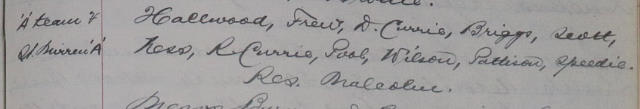 'A' team v Hallwood, Frew, D. Currie, Briggs, Scott,
St. Burren 'A' Ness, R Currie, Pool, Wilson, Pattison, Speedie.
Res. Malcolm.